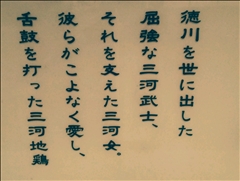 徳川を世に出した
屈強な三河武士、
それを支えた三河女。
彼らがこよなく愛し、
舌鼓を打った三河地鶏